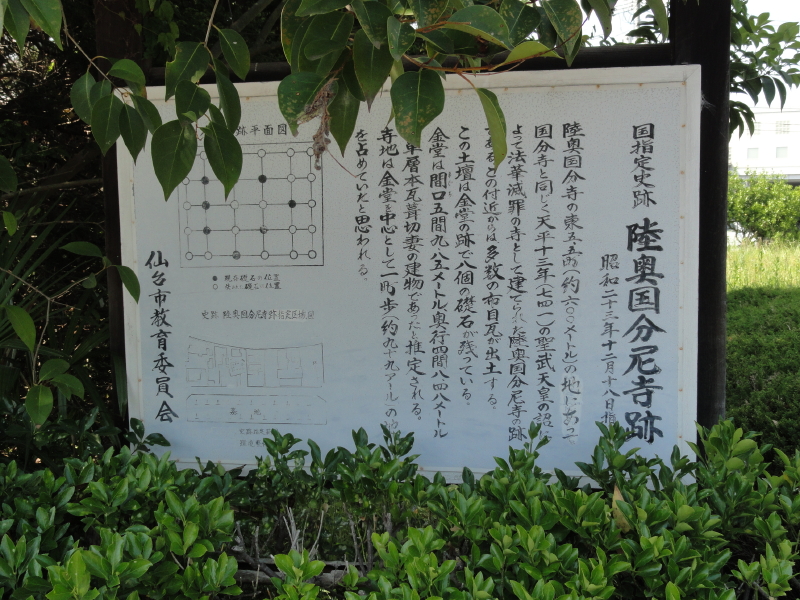 国指定史跡 陸奥国分尼寺跡
昭和二十三年十二月十八日指
陸奥国分寺の東五五所(約六〇〇メートル)の地にあって
国分寺と同じく天平十三年(七四一)の聖武天皇の詔に
よって法華滅罪の寺として建てられた陸奥国分尼寺の跡
である。この付近からは多数の布目瓦が出土する。
この土壇は金堂の跡で八個の礎石が残っている。
金堂は間口五間九・八五メートル奥行四間八・四八メートル
単層本瓦葺切妻の建物であったと推定される。
寺地は金堂を中心として一町歩(約九十九アール)の
を占めていたと思われる。
跡平面図
● 現存礎石の位置
○ 失われた礎石の位置
史跡 陸奥国分尼寺跡指定区域図
墓地
仙台市教育委員会